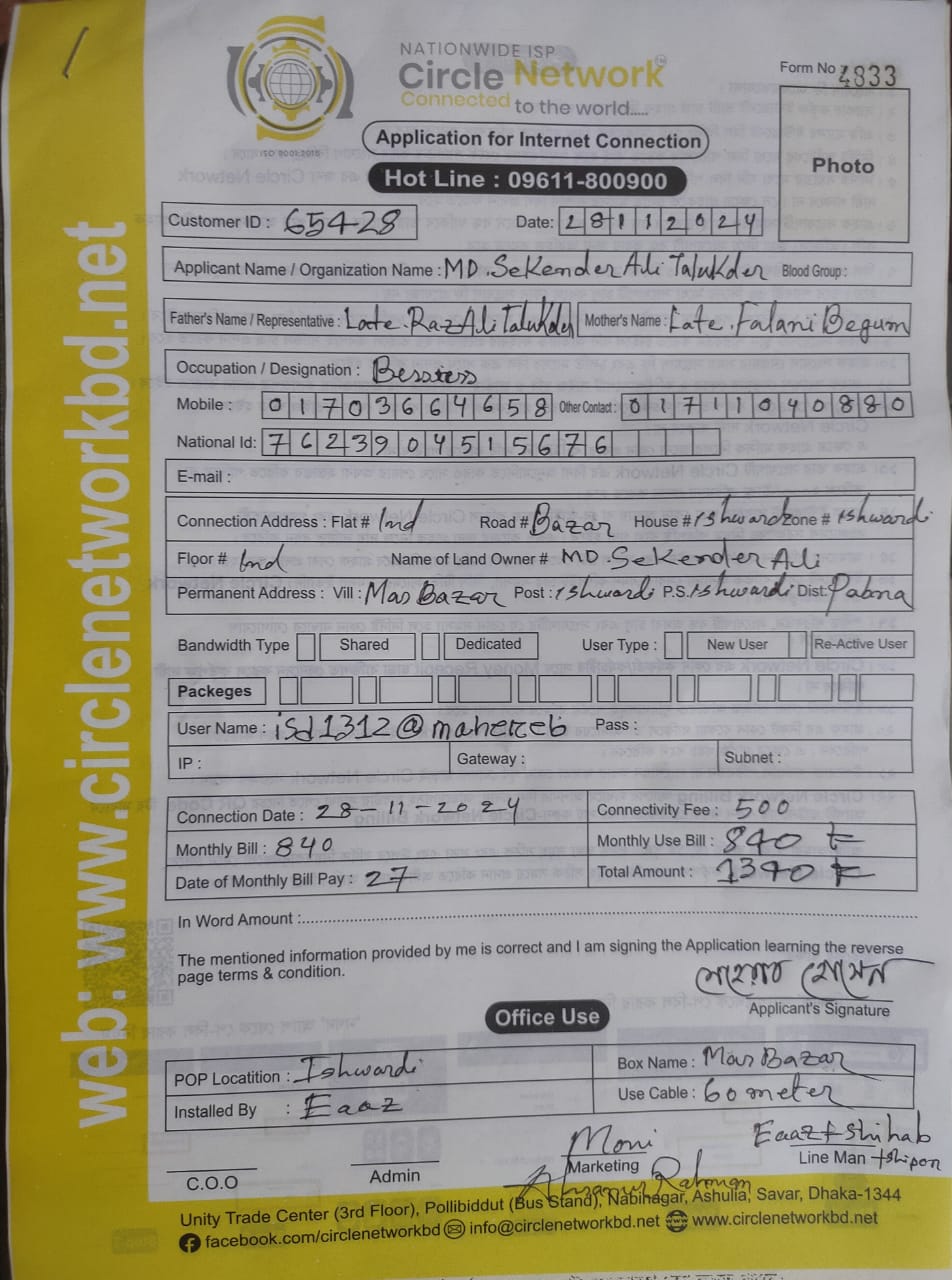 NATIONWIDE ISP
Circle Network
Connected to the world.....
ISO 9001:2015
Form No 4833
Application for Internet Connection
Photo
Hot Line : 09611-800900
Customer ID : 65428
Date: 28112024
Applicant Name / Organization Name : MD. Sekender Ali Talukder Blood Group :
Father's Name / Representative : Late. Raz Ali Talukder Mother's Name : Late. Falani Begum
Occupation / Designation :
Mobile : 01703664658 Other Contact : 01711040880
National Id: 7623904515676
E-mail :
Connection Address : Flat # Road # Bazar House # Ishwardi Zone # Ishwardi
Floor # Name of Land Owner # MD. Sekender Ali
Permanent Address : Vill : Mas Bazar Post : Ishwardi P.S. Ishwardi Dist: Pabna
Bandwidth Type Shared Dedicated User Type : New User Re-Active User
Packeges
User Name : isd1312@maherceb Pass :
IP : Gateway : Subnet :
Connection Date : 28-11-2024 Connectivity Fee : 500
Monthly Bill : 840 Monthly Use Bill : 840 ৳
Date of Monthly Bill Pay : 27 Total Amount : 1340 ৳
In Word Amount :
The mentioned information provided by me is correct and I am signing the Application learning the reverse
page terms & condition.
Applicant's Signature
Office Use
POP Locatition : Ishwardi Box Name : Mas Bazar
Installed By : Eaaz Use Cable : 60 meter
Moni Eaaz + Shihab
C.O.O Admin Marketing Line Man + Shipon
Unity Trade Center (3rd Floor), Pollibiddut (Bus Stand), Nabinagar, Ashulia, Savar, Dhaka-1344
facebook.com/circlenetworkbd info@circlenetworkbd.net www.circlenetworkbd.net
web: www.circlenetworkbd.net